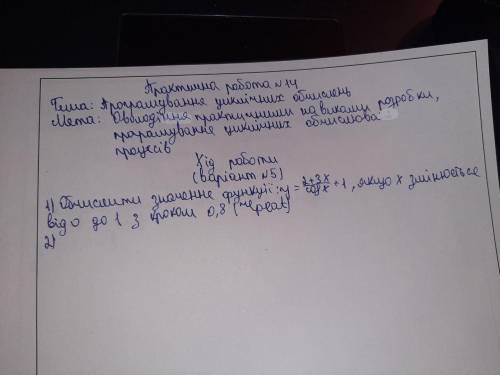 Практична робота №14
Тема: Програмування циклічних обчислень
Мета: Оволодіння практичними навиками розробки,
програмування циклічних обчислюва
процесів
Хід работи
(варіант №5)
1) Обчислити значенне функції: y = \frac{2+3x}{\cos x} + 1, якщо x змінюється
від 0 до 1 з кроком 0,8 (repeat)
2)